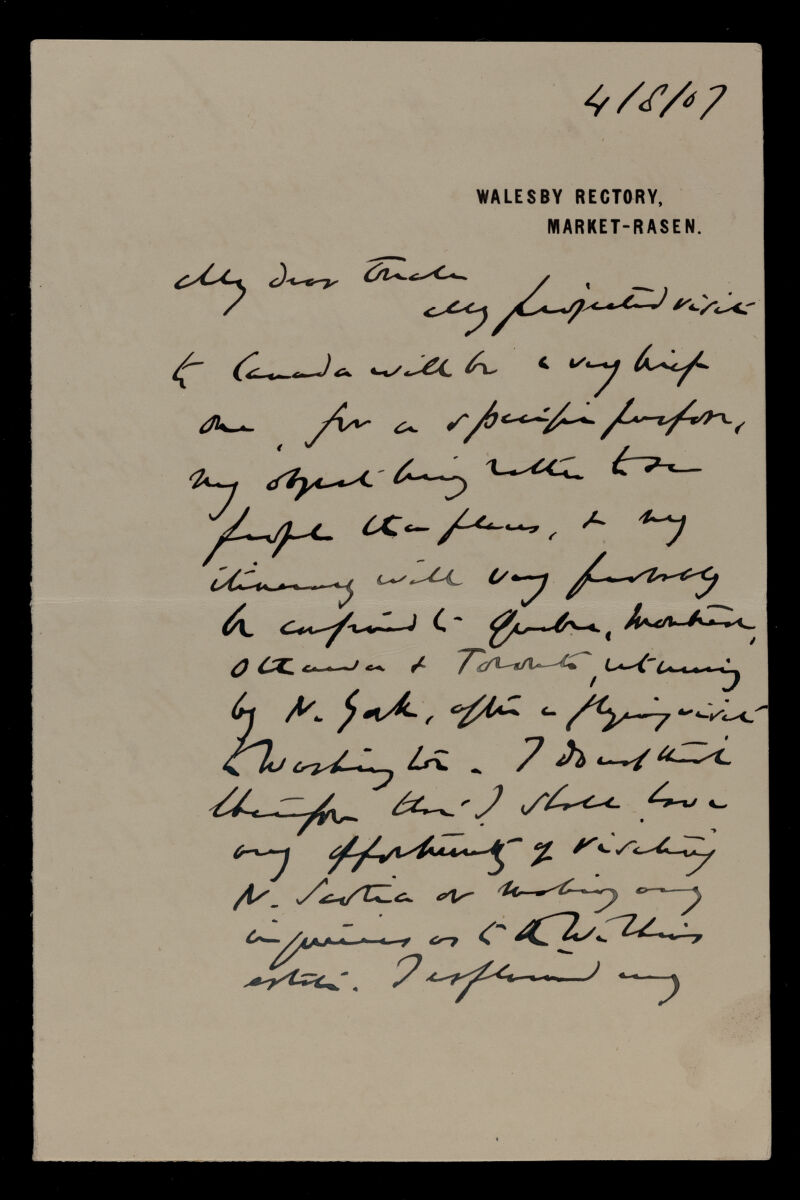 4/8/07
WALESBY RECTORY,
MARKET-RASEN.
My dear
My projected visit
to Canada will be a very brief
one, for a specific purpose,
my object being rather to see
people than places, & my
itinerary will very probably
be confined to Quebec, Montreal,
Ottawa & Toronto, returning
by N. York, after a flying visit
to Washington. I do not think
therefore that I shall have
any opportunity of visiting
N. Scotia or making any
inquiries as to
estate. I explained my